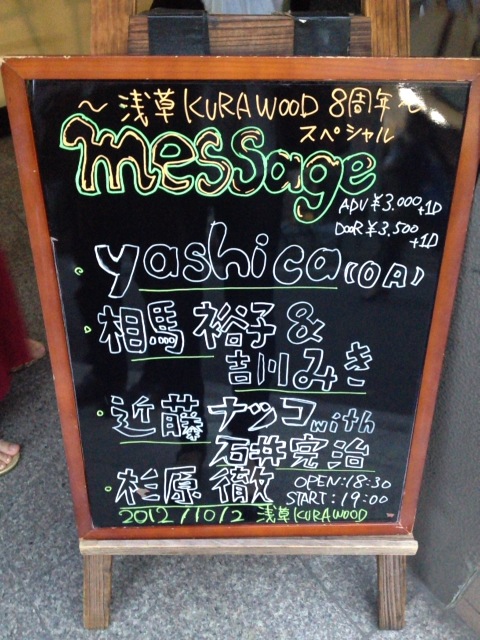 ～浅草KURAWOOD 8周年～
スペシャル
message
ADV ¥3.000+1D
DOOR ¥3.500+1D
yashica(OA)
相馬 裕子 &
吉川みき
近藤 ナツコ with
石井完治
杉原 徹
OPEN:18:30
START:19:00
2012/10/2 浅草KURAWOOD